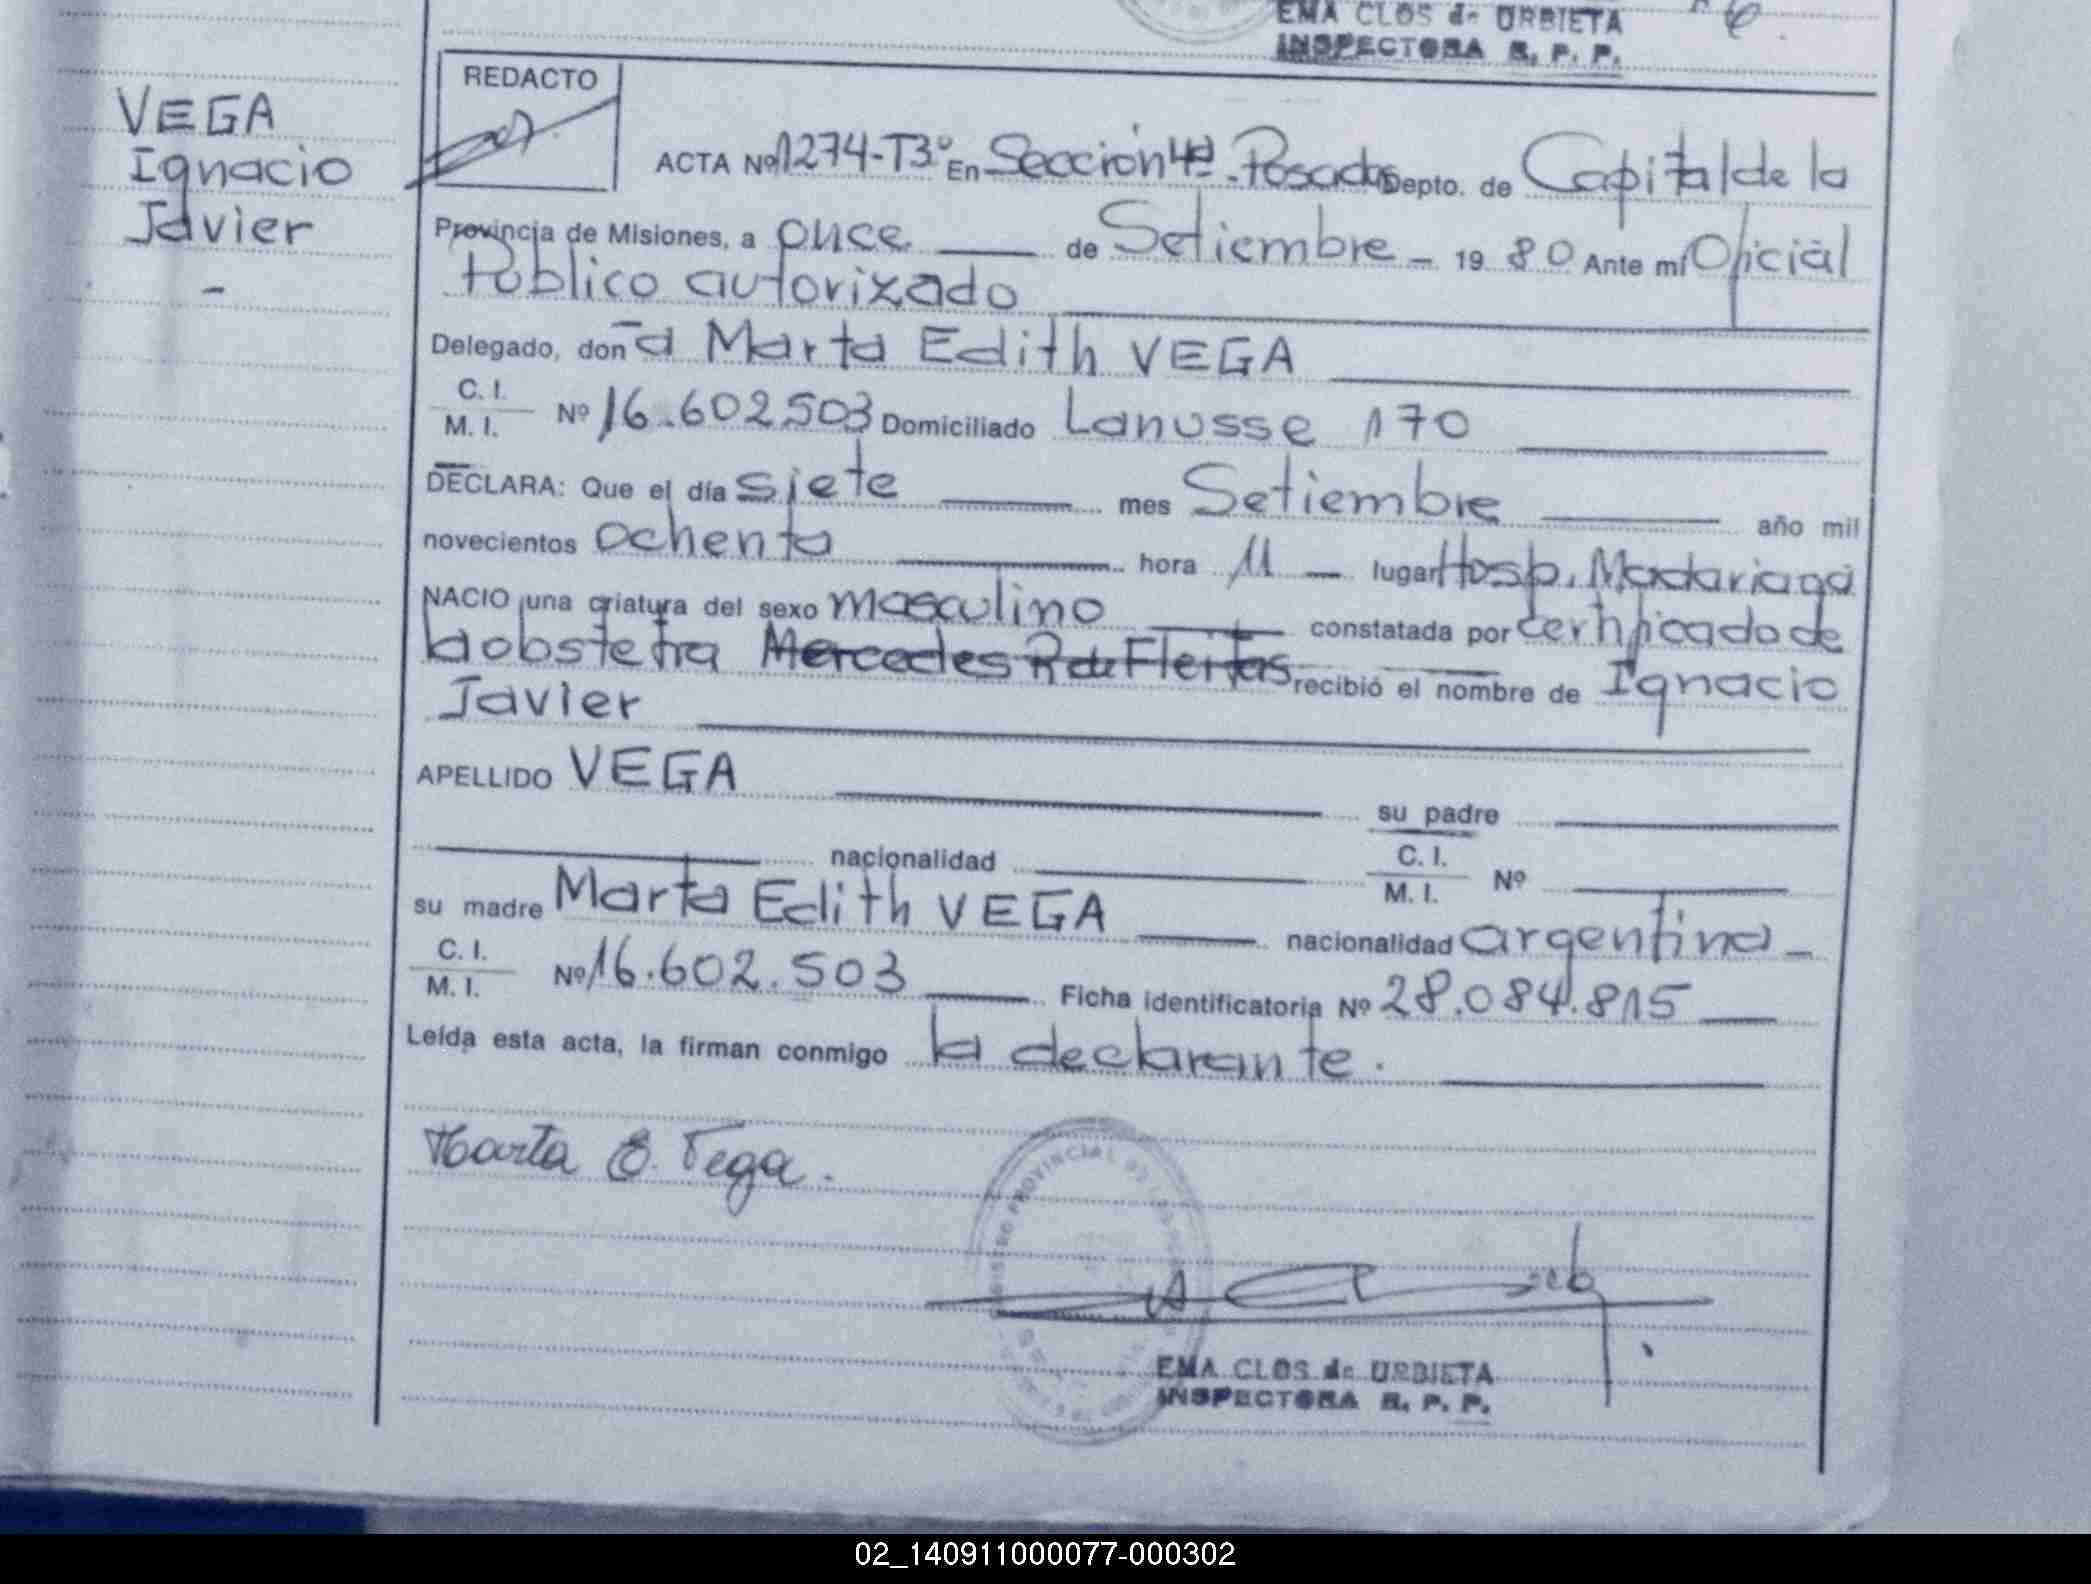 EMA CLOS de URBIETA
INSPECTORA R. P. P.
VEGA
Ignacio
Javier
-
REDACTO
ACTA Nº 1274-T3º En Sección 4ª - Posadas Depto. de Capital de la
Provincia de Misiones, a once de Setiembre - 19 80 Ante mí Oficial
Público autorizado
Delegado, don a Marta Edith VEGA
C. I.
M. I. Nº 16.602.503 Domiciliado Lanusse 170
DECLARA: Que el día siete mes Setiembre año mil
novecientos ochenta hora 11 - lugar Hosp. Madariaga
NACIO una criatura del sexo masculino constatada por certificado de
la obstetra Mercedes R de Fleitas recibió el nombre de Ignacio
Javier
APELLIDO VEGA su padre
nacionalidad C. I. M. I. Nº
su madre Marta Edith VEGA nacionalidad argentina -
C. I.
M. I. Nº 16.602.503 Ficha identificatoria Nº 28.084.815
Leída esta acta, la firman conmigo la declarante.
Marta E. Vega.
REGISTRO PROVINCIAL DE LAS
EMA CLOS de URBIETA
INSPECTORA R. P. P.
02_140911000077-000302